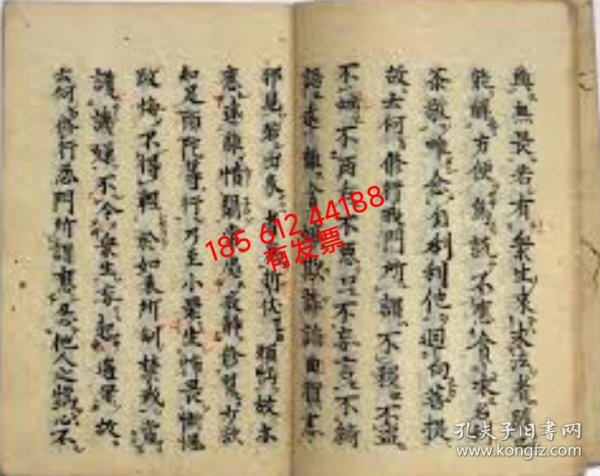 與無畏若有衆生來求法者隨
能解方便為說不應貪求名
恭敬唯念自利利他迴向菩提
故云何修行戒門所謂不殺不盗
不婬不兩舌不惡口不妄言不綺
語遠離
邪見若出家者折伏煩惱故亦
應遠離憒閙寂靜修習少欲
知足頭陀等行乃至小罪心生怖畏慚愧
改悔不得輕於如來所制禁戒當
護譏嫌不令衆生妄起過罪故
云何修行忍門所謂應忍他人之惱心不
185 612 44188
有发票
孔夫子旧书网
www.kongfz.com